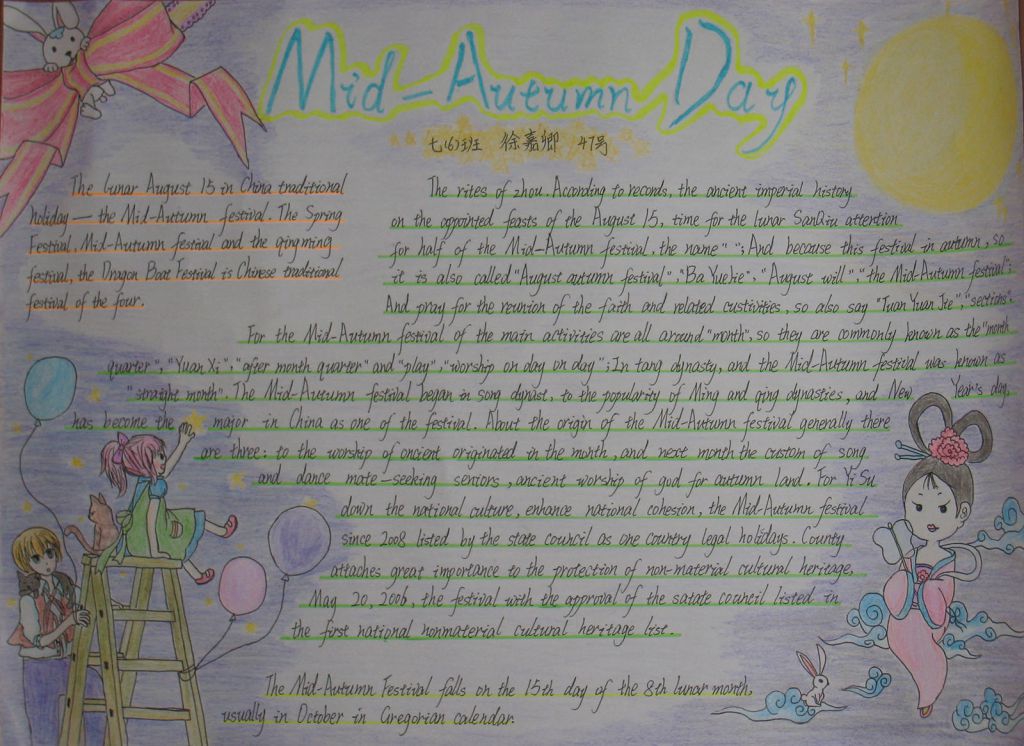 Mid-Autumn Day
七(6)班 徐嘉卿 47号
The lunar August 15 in China traditional
holiday — the Mid-Autumn festival. The Spring
Festival, Mid-Autumn festival and the qingming
festival, the Dragon Boat Festival is Chinese traditional
festival of the four.
The rites of zhou. According to records, the ancient imperial history
on the appointed feasts of the August 15, time for the lunar SanQiu attention
for half of the Mid-Autumn festival, the name" "; And because this festival in autumn, so
it is also called "August autumn festival", "Ba YueJie", "August will", "the Mid-Autumn festival";
And pray for the reunion of the faith and related custivities, so also say "Tuan Yuan Jie", "sections".
For the Mid-Autumn festival of the main activities are all around "month", so they are commonly known as the "month
quarter", "Yuan Yi", "after month quarter" and "play", "worship on day on day"; In tang dynasty, and the Mid-Autumn festival was known as
"straight month". The Mid-Autumn festival began in song dynast, to the popularity of Ming and qing dynasties, and New Year's day,
has become the major in China as one of the festival. About the origin of the Mid-Autumn festival generally there
are three: to the worship of oncient originated in the month, and next month the custom of song
and dance mate-seeking seniors, ancient worship of god for autumn land. For Yi Su
down the national culture, enhance national cohesion, the Mid-Autumn festival
since 2008 listed by the state council as one country legal holidays. County
attaches great importance to the protection of non-material cultural heritage,
May 20, 2006, the festival with the approval of the satate council listed in
the first national nonmaterial cultural heritage list.
The Mid-Autumn Festival falls on the 15th day of the 8th lunar month,
usually in October in Gregorian calendar.